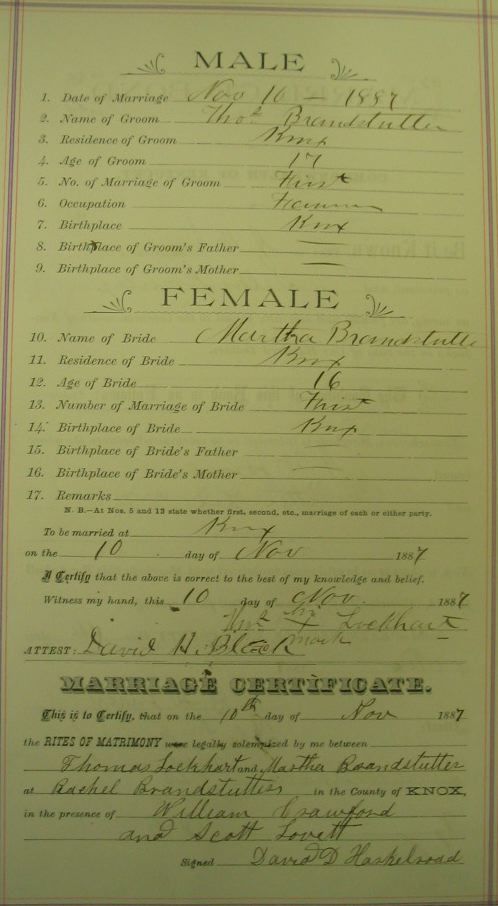 MALE
1. Date of Marriage Nov 10 - 1887
2. Name of Groom Thos Brandstutter
3. Residence of Groom Knx
4. Age of Groom 17
5. No. of Marriage of Groom First
6. Occupation Farmer
7. Birthplace Knx
8. Birthplace of Groom's Father —
9. Birthplace of Groom's Mother —
FEMALE
10. Name of Bride Martha Brandstutter
11. Residence of Bride Knx
12. Age of Bride 16
13. Number of Marriage of Bride First
14. Birthplace of Bride Knx
15. Birthplace of Bride's Father —
16. Birthplace of Bride's Mother —
17. Remarks
N. B.—At Nos. 5 and 13 state whether first, second, etc., marriage of each or either party.
To be married at Knx
on the 10 day of Nov 1887
I Certify that the above is correct to the best of my knowledge and belief.
Witness my hand, this 10 day of Nov. 1887
X Lockhart
mark
ATTEST: David H. Black
MARRIAGE CERTIFICATE.
This is to Certify, that on the 10th day of Nov 1887
the RITES OF MATRIMONY were legally solemnized by me between
Thomas Lockhart and Martha Brandstutter
at Rachel Brandstutters in the County of KNOX,
in the presence of William Crawford
and Scott Lovett
Signed David D Haskelroad